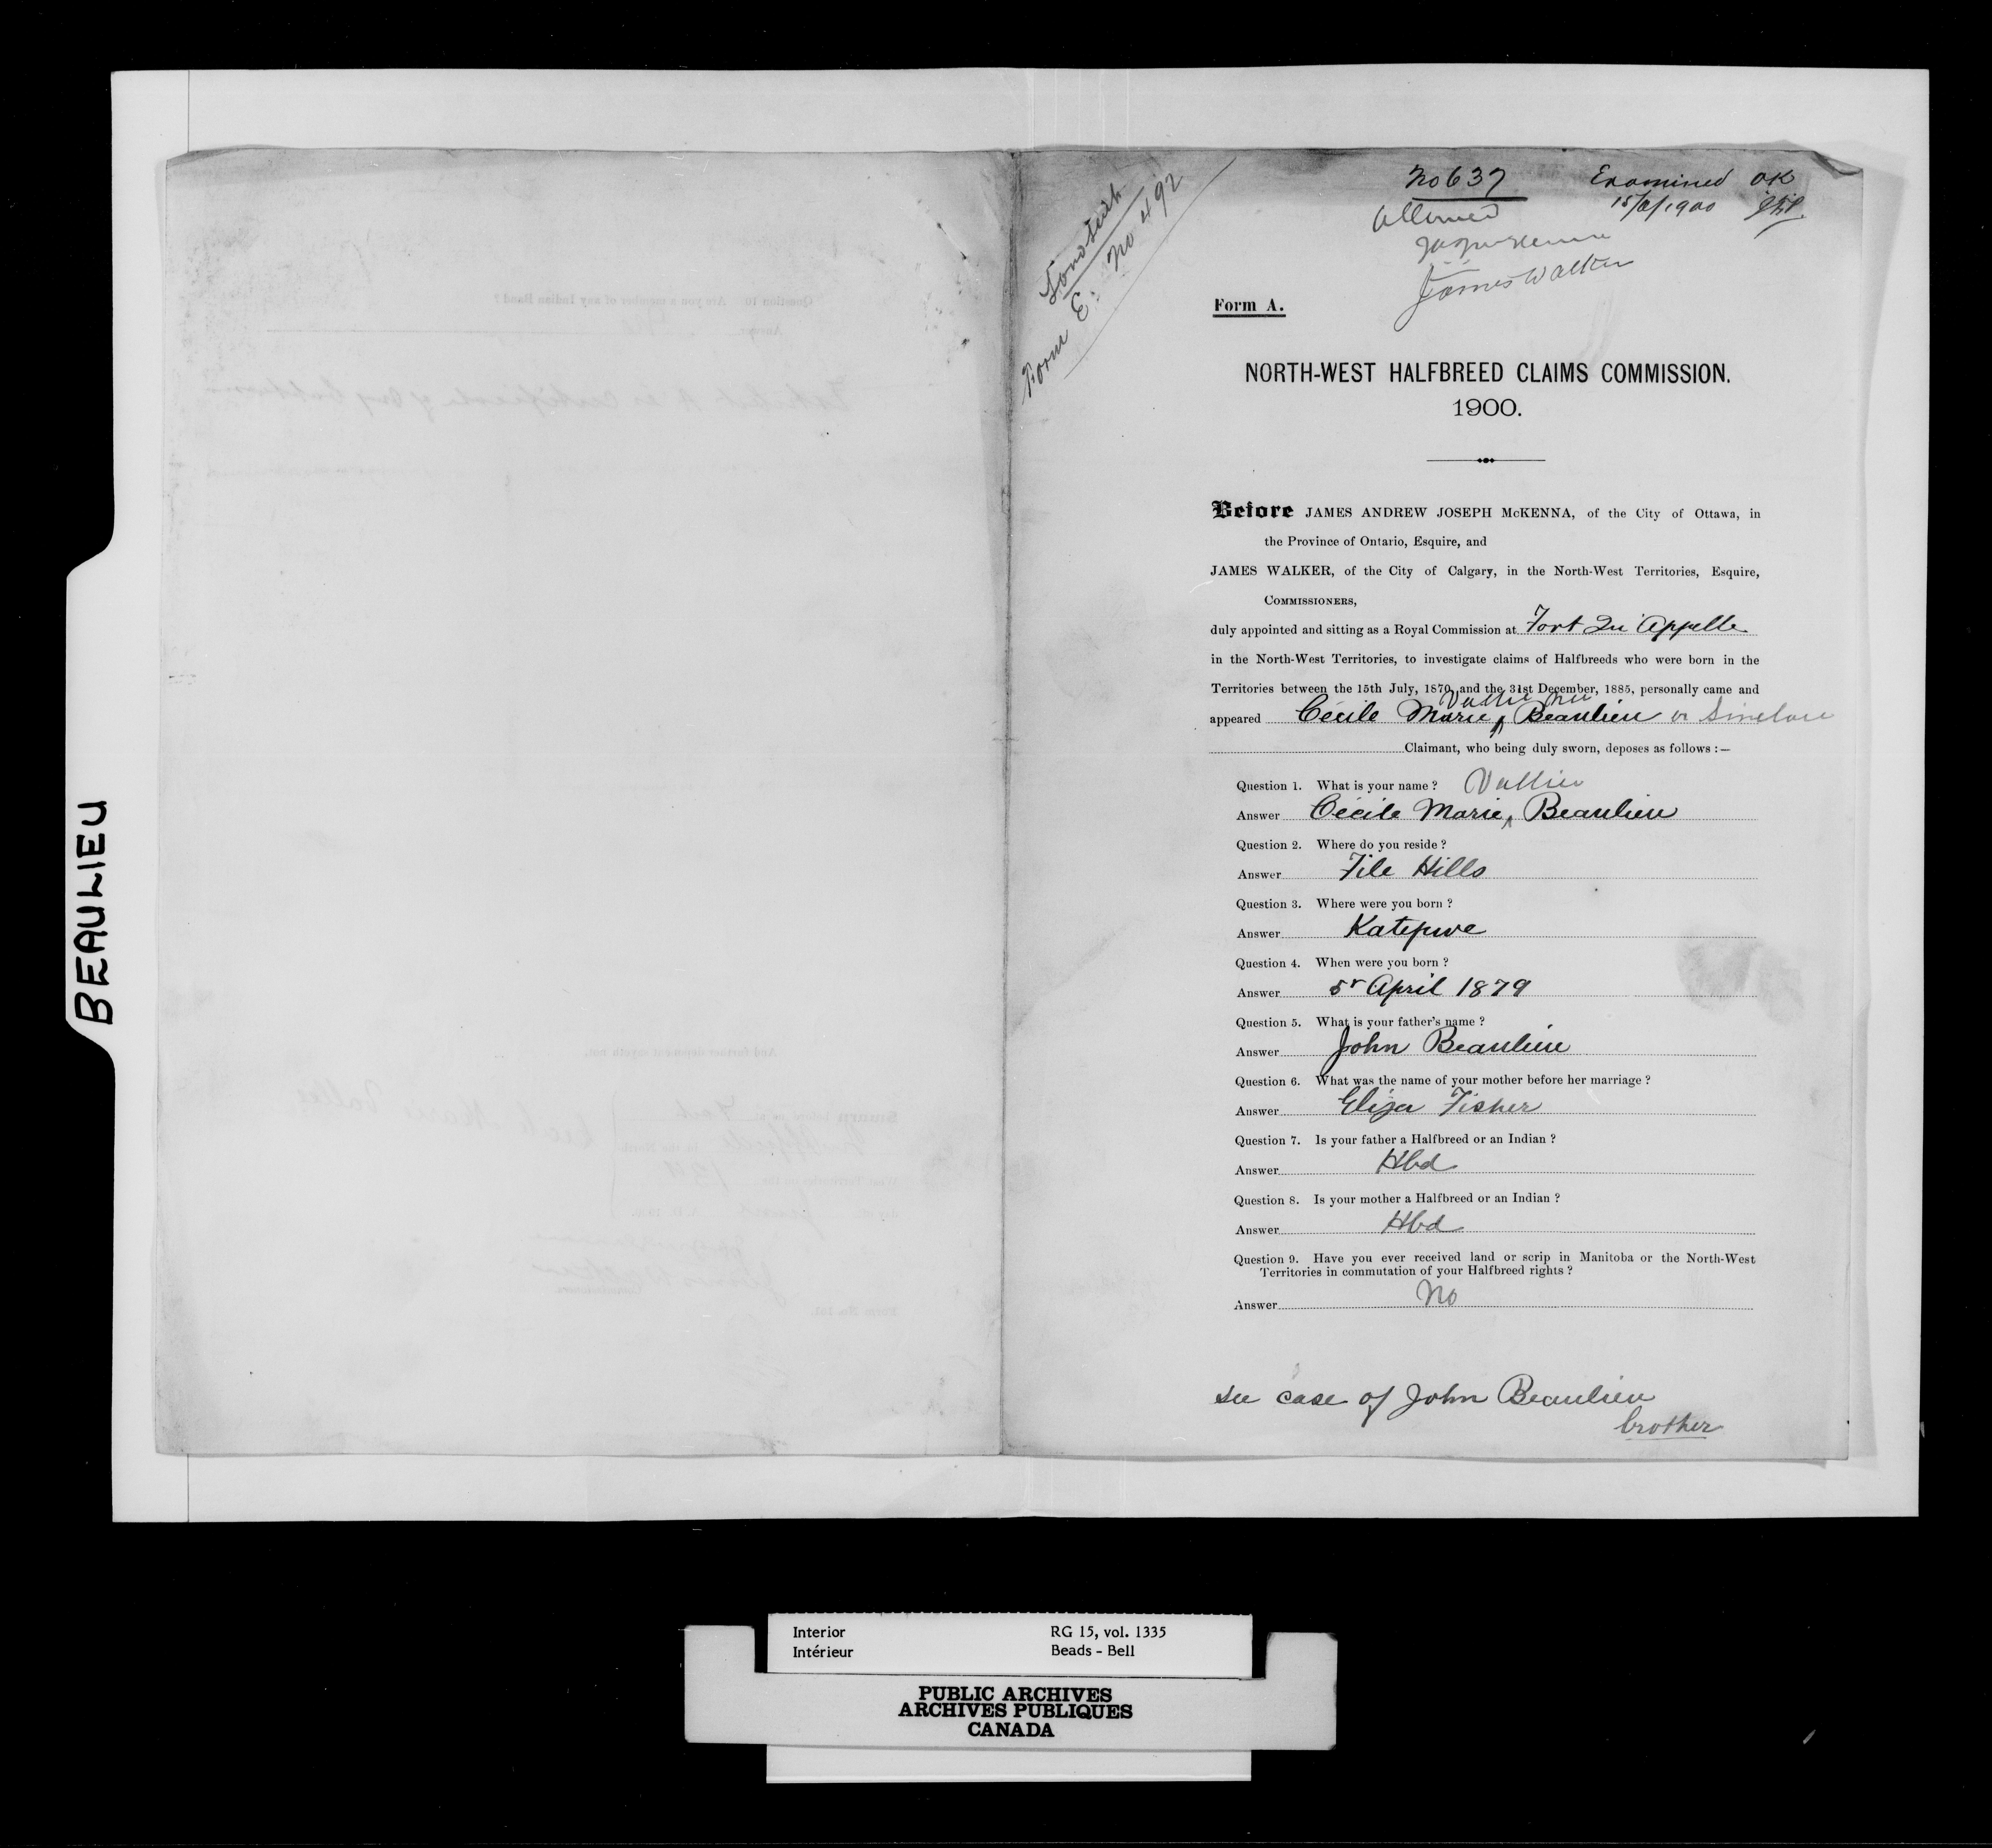 BEAULIEU
Form E. No 492
No 637
Examined OK
Allowed
James Walker
Form A.
NORTH-WEST HALFBREED CLAIMS COMMISSION.
1900.
Before JAMES ANDREW JOSEPH McKENNA, of the City of Ottawa, in
the Province of Ontario, Esquire, and
JAMES WALKER, of the City of Calgary, in the North-West Territories, Esquire,
COMMISSIONERS,
duly appointed and sitting as a Royal Commission at Fort Qu'Appelle
in the North-West Territories, to investigate claims of Halfbreeds who were born in the
Territories between the 15th July, 1870, and the 31st December, 1885, personally came and
appeared Cécile Marie Vallie nee Beaulieu or Sinclair
Claimant, who being duly sworn, deposes as follows :—
Question 1. What is your name ?
Answer Cécile Marie Vallie Beaulieu
Question 2. Where do you reside ?
Answer File Hills
Question 3. Where were you born ?
Answer Katepwe
Question 4. When were you born ?
Answer 5r April 1879
Question 5. What is your father's name ?
Answer John Beaulieu
Question 6. What was the name of your mother before her marriage ?
Answer Eliza Fisher
Question 7. Is your father a Halfbreed or an Indian ?
Answer Hbd
Question 8. Is your mother a Halfbreed or an Indian ?
Answer Hbd
Question 9. Have you ever received land or scrip in Manitoba or the North-West
Territories in commutation of your Halfbreed rights ?
Answer No
see case of John Beaulieu
brother
Interior RG 15, vol. 1335
Intérieur Beads - Bell
PUBLIC ARCHIVES
ARCHIVES PUBLIQUES
CANADA